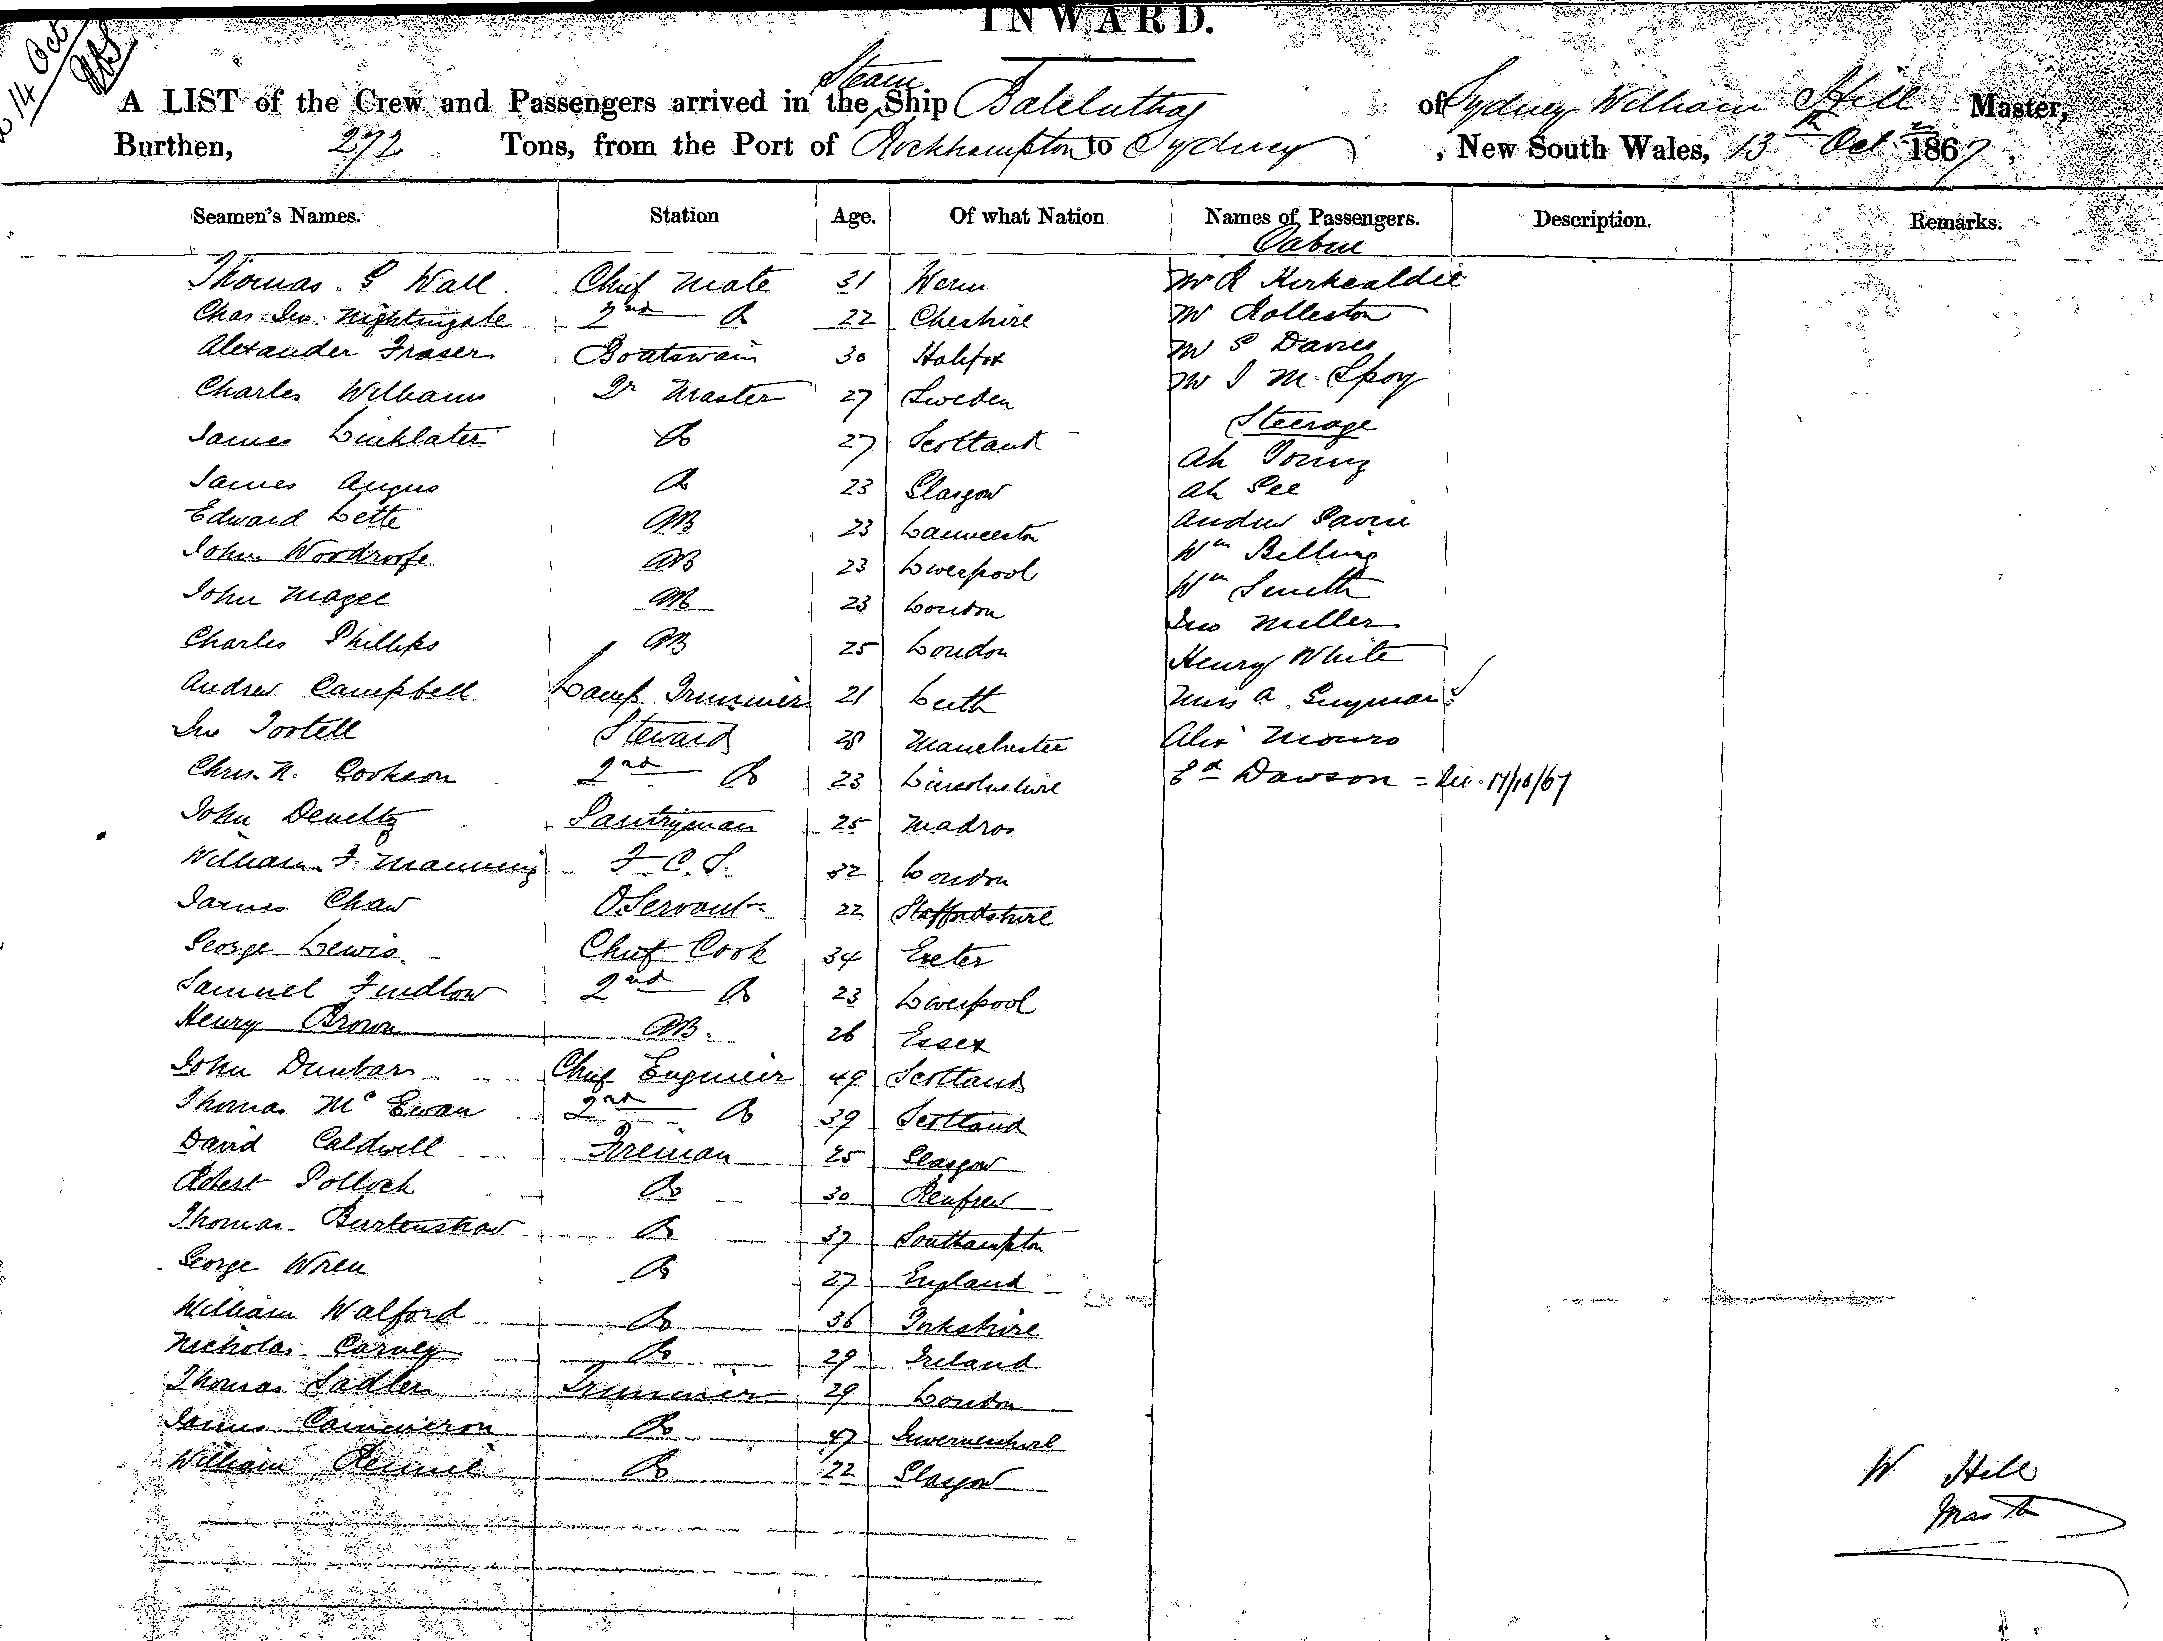 14 Oct
INWARD.
Steam
A LIST of the Crew and Passengers arrived in the Ship Balclutha of Sydney William Hill Master,
Burthen, 272 Tons, from the Port of Rockhampton to Sydney, New South Wales, 13th Oct 1867.
Seamen's Names. Station Age. Of what Nation Names of Passengers. Description. Remarks.
Cabin
Thomas G Wall Chief Mate 31 Wem Mr R Kirkcaldie
Chas Jno Nightingale 2nd Do 22 Cheshire Mr Rolleston
Alexander Fraser Boatswain 30 Halifax Mr S Davies
Charles Williams Qr Master 27 Sweden Mr J M
Steerage
James Linklater Do 27 Scotland Ah Young
James Angus Do 23 Glasgow Ah See
Edward Lette AB 23 Launceston Andrew
John Woodroofe AB 23 Liverpool Wm Billing
John Magee AB 23 London Wm Smith
Charles Phillips AB 25 London Jno Miller
Henry White
Andrew Campbell Lamp Trimmer 21 Leith Miss A.
Jno Tortell Steward 28 Manchester Alexr Monro
Chrs. N. Cookson 2nd Do 23 Lincolnshire Ed Dawson = 17/10/67
John Pantryman 25 Madras
William F. Manning F.C.S. 32 London
James Chaw O.Servant 22 Staffordshire
George Lewis Chief Cook 34 Exeter
Samuel Findlow 2nd Do 23 Liverpool
Henry Brown AB. 26 Essex
John Dunbar Chief Engineer 49 Scotland
Thomas McEwan 2nd Do 39 Scotland
David Caldwell Fireman 25 Glasgow
Robert Pollock Do 30 Renfrew
Thomas Burtenshaw Do 37 Southampton
George Wren Do 27 England
William Walford Do 36 Yorkshire
Nicholas Carvey Do 29 Ireland
Thomas Sadler Trimmer 29 London
James Cammeron Do 47 Invernesshire
William Rennie Do 22 Glasgow
W Hill
Master